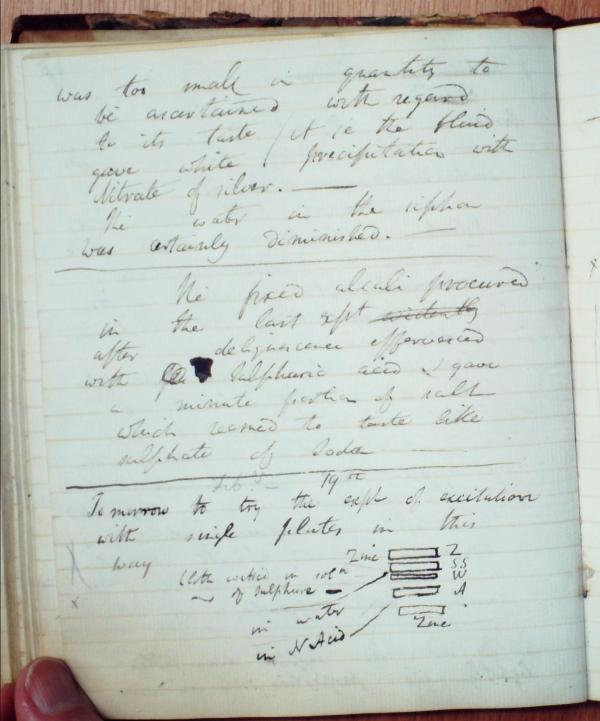 was too small in quantity to
be ascertained with regard
to its taste / it ie the fluid
gave white / precipitation with
Nitrate of silver. —
The water in the siphon
was certainly diminished. —
The fixed alcali procured
in the last expt evidently
after deliquescence effervesced
with Sulphuric acid & gave
a minute portion of salt
which seemed to taste like
sulphate of Soda
19th
Tomorrow to try the expt of excitation
with single plates in this
way
Zinc Z
Cloth wetted in soln SS
of sulphure W
in water A
in N Acid
Zinc
x
x